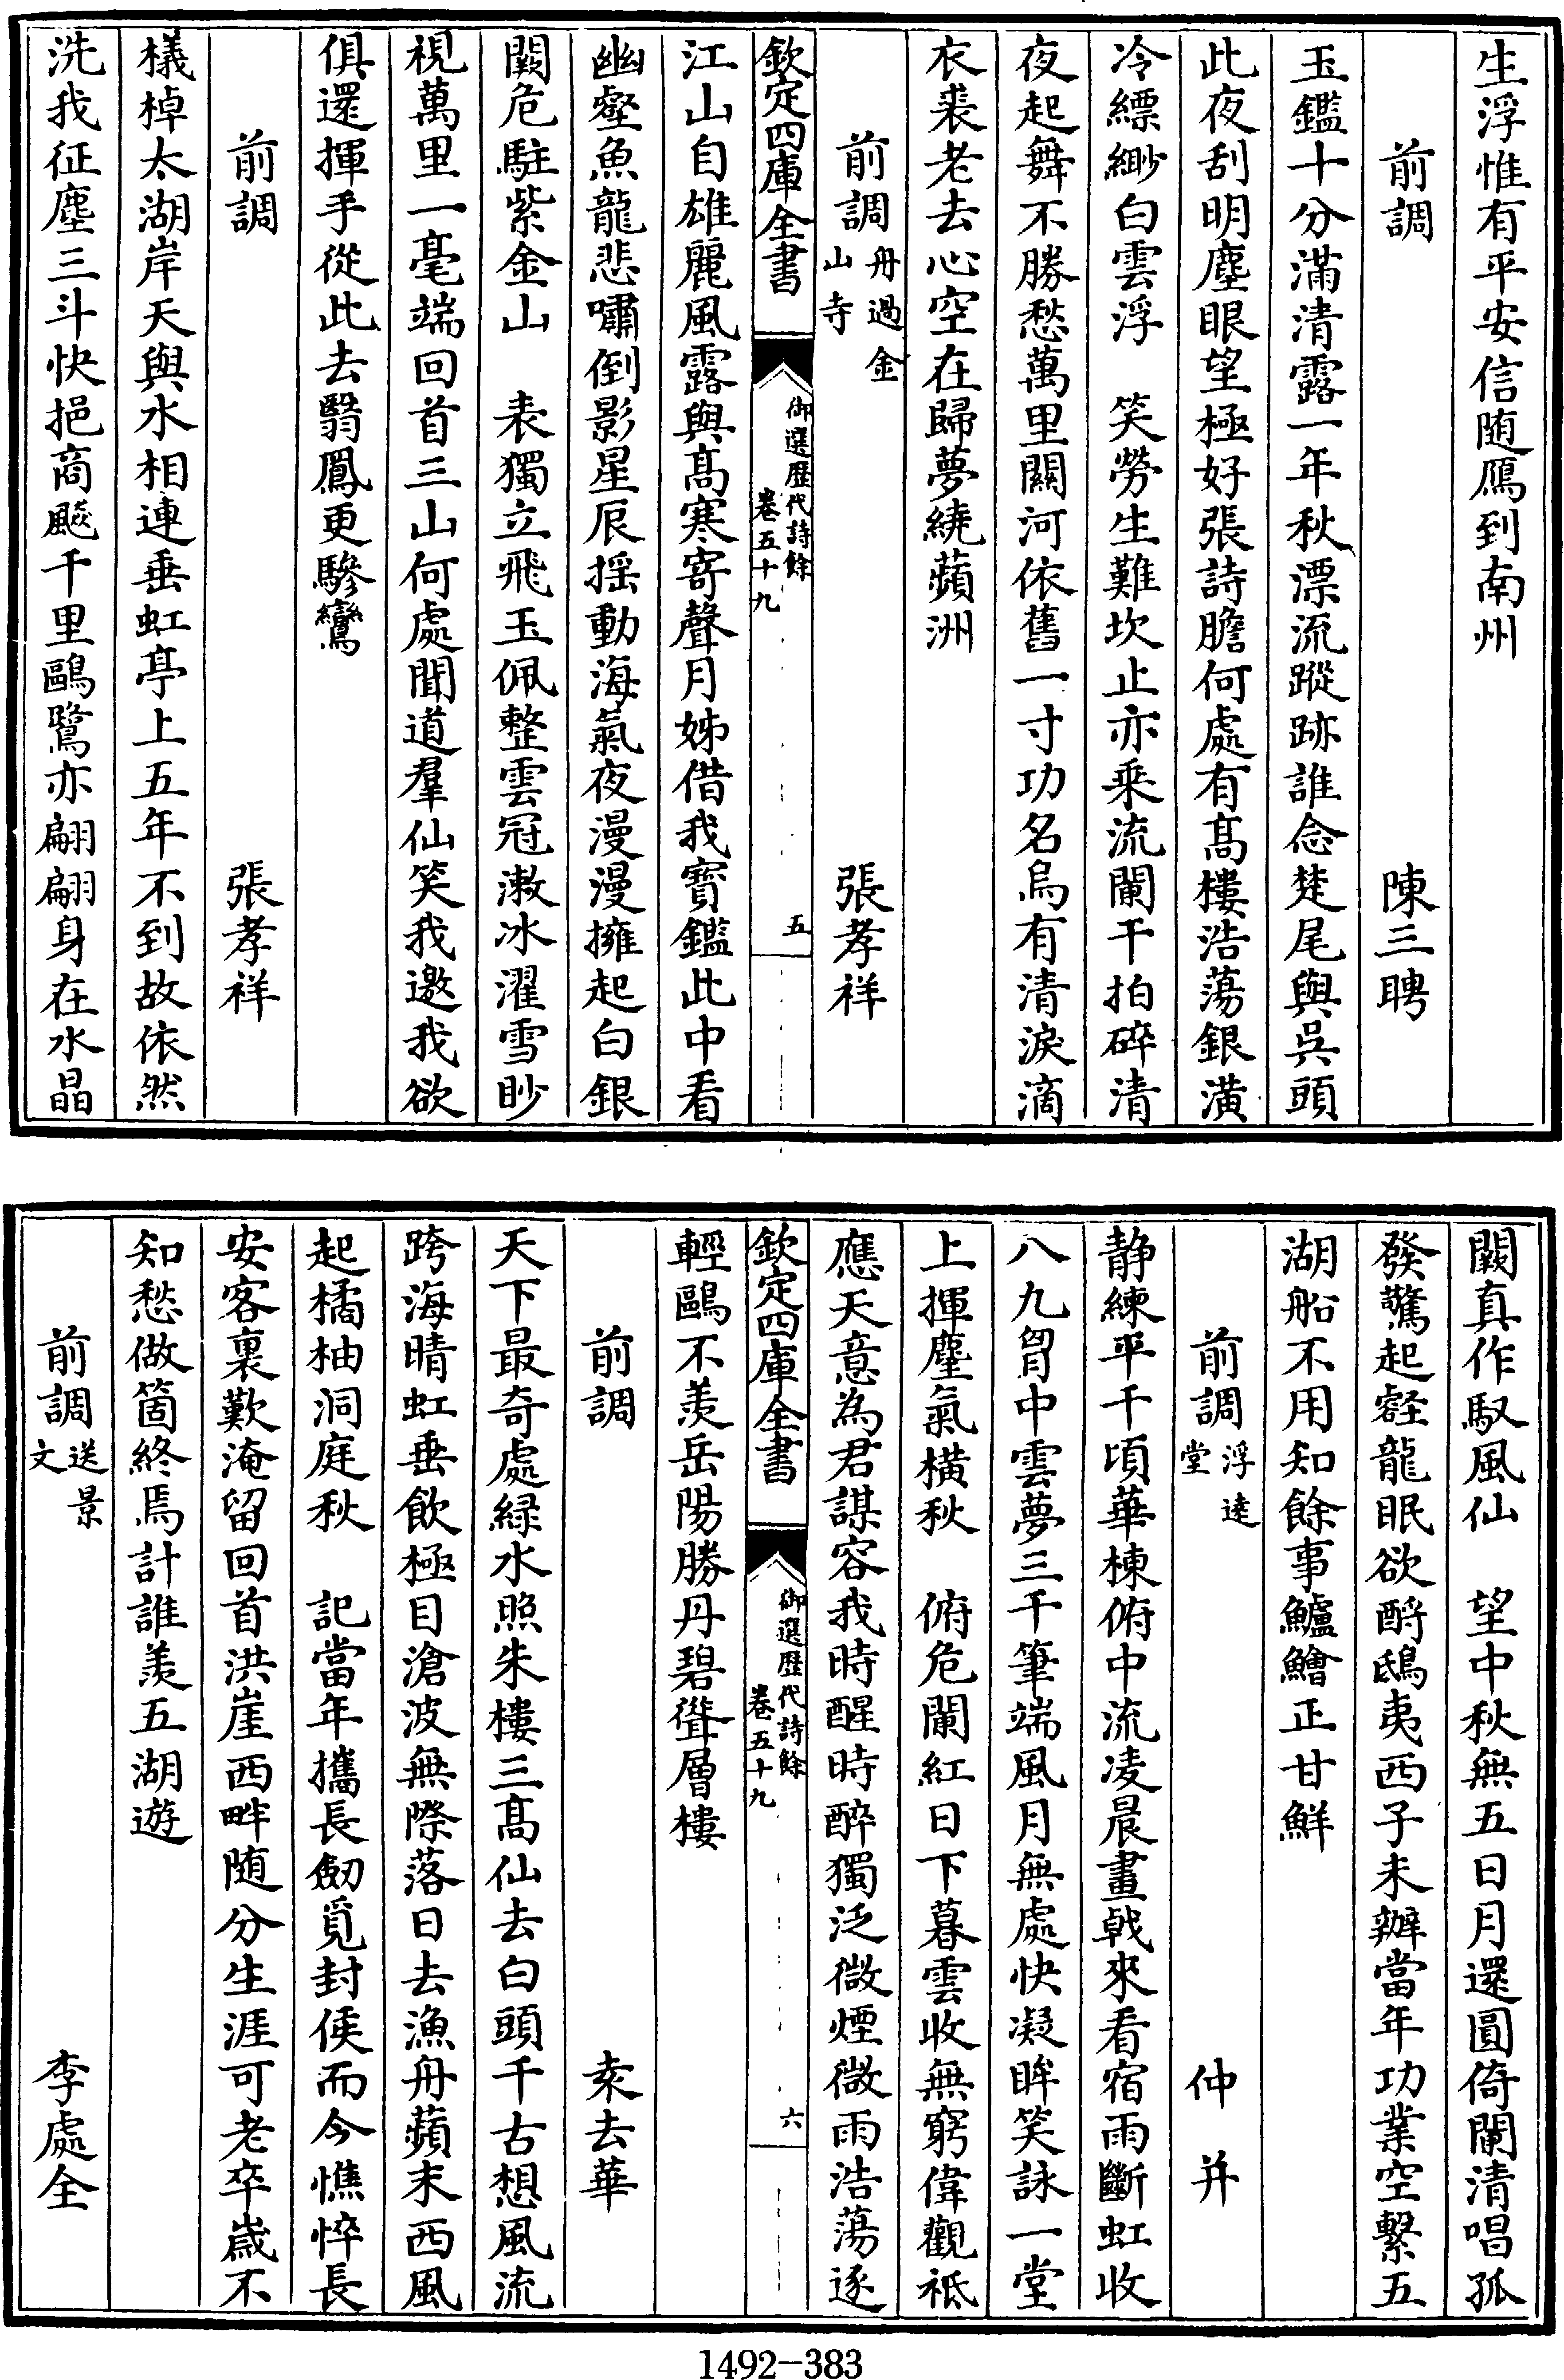 生浮惟有平安信随鴈到南州
前調　陳三聘
玉鑑十分滿清露一年秋漂流蹤跡誰念楚尾與吳頭
此夜刮明塵眼望極好張詩膽何處有髙樓浩蕩銀潢
冷縹緲白雲浮　笑勞生難坎止亦乘流闌干拍碎清
夜起舞不勝愁萬里關河依舊一寸功名烏有清淚滴
衣裘老去心空在歸夢繞蘋洲
前調舟過金山寺　張孝祥
欽定四庫全書　御選歴代詩餘卷五十九　五
江山自雄麗風露與髙寒寄聲月姊借我寳鑑此中看
幽壑魚龍悲嘯倒影星辰揺動海氣夜漫漫擁起白銀
闕危駐紫金山　表獨立飛玉佩整雲冠漱冰濯雪眇
視萬里一毫端回首三山何處聞道羣仙笑我邀我欲
俱還揮手從此去翳鳳更驂鸞
前調　張孝祥
檥棹太湖岸天與水相連垂虹亭上五年不到故依然
洗我征塵三斗快挹商飈千里鷗鷺亦翩翩身在水晶
闕真作馭風仙　望中秋無五日月還圓倚闌清唱孤
發驚起壑龍眠欲酹鴟夷西子未辦當年功業空繫五
湖船不用知餘事鱸鱠正甘鮮
前調浮逺堂　仲并
静練平千頃華棟俯中流凌晨畫戟來看宿雨斷虹收
八九胷中雲夢三千筆端風月無處快凝眸笑詠一堂
上揮麈氣横秋　俯危闌紅日下暮雲收無窮偉觀祗
應天意為君謀容我時醒時醉獨泛微煙微雨浩蕩逐
欽定四庫全書　御選歴代詩餘卷五十九　六
輕鷗不羡岳陽勝丹碧聳層樓
前調　袁去華
天下最奇處緑水照朱樓三髙仙去白頭千古想風流
跨海晴虹垂飲極目滄波無際落日去漁舟蘋末西風
起橘柚洞庭秋　記當年攜長劒覓封侯而今憔悴長
安客裏歎淹留回首洪崖西畔随分生涯可老卒歳不
知愁做箇終焉計誰羡五湖遊
前調送景文　李處全
1492-383